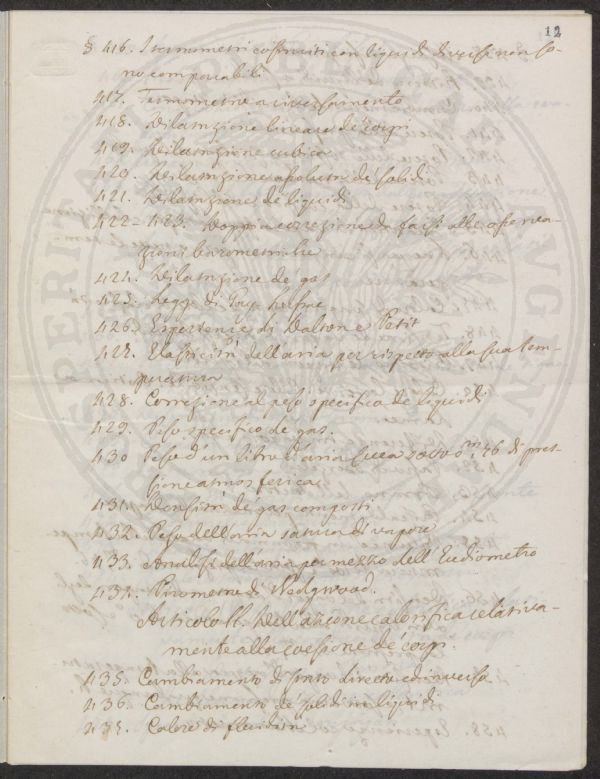 12
§ 416. I termometri costruiti con liquidi diversi non so-
no comparabili
417. Termometro a riversamento
418. Dilatazione lineare di corpi
419. Dilatazione cubica
420. Dilatazione assoluta de' solidi
421. Dilatazione de' liquidi
422–423. Doppia correzione da farsi alle osserva-
zioni barometriche
424. Dilatazione de' gas
425. Legge di Gay-Lussac
426. Esperienze di Dalton e Petit
427. Elasticità dell'aria per rispetto alla sua tem-
peratura
428. Correzione al peso specifico de' liquidi
429. Peso specifico de' gas.
430 Peso d'un litro d'aria secca sotto 0m,76 di pres-
sione atmosferica
431. Densità de' gas composti
432. Peso dell'aria satura di vapore
433. Analisi dell'aria per mezzo dell'Eudiometro
434. Pirometro di Wedgwood.
Articolo II. Dell'azione calorifica relativa-
mente alla coesione de' corpi.
435. Cambiamento di stato diretto ed inverso
436. Cambiamento de' solidi in liquidi
437. Calore di fluidità